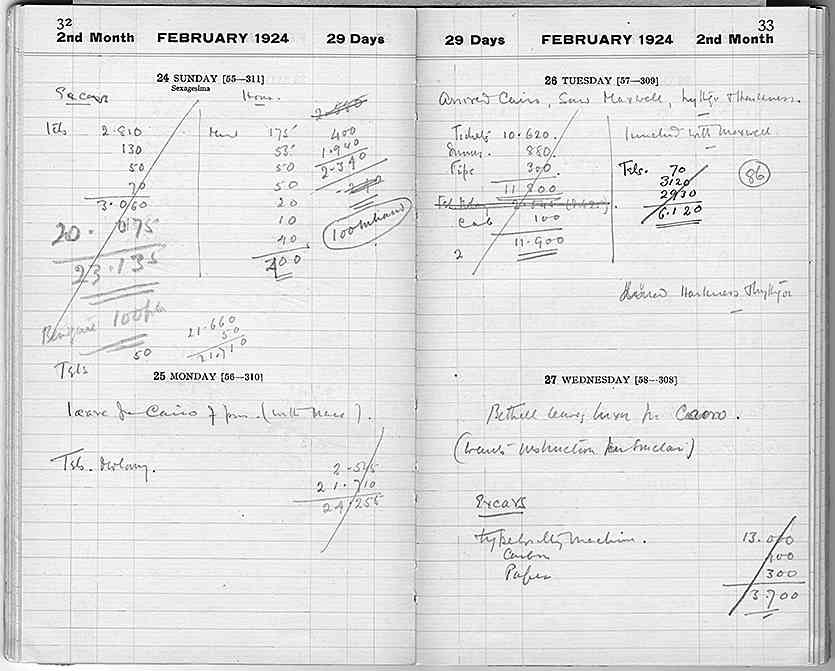 32
2nd Month FEBRUARY 1924 29 Days
24 SUNDAY [55—311]
Sexagesima
Excavs House.
Tels 2.810
130
50
70
3.060
20. 075
23.135
175
55
50
50
20
10
40
400
400
1.940
2.340
100 in hand
100
50
21.660
50
21.710
Tels
25 MONDAY [56—310]
leave for Cairo 7 pm. (with Mace).
Tels.
2.545
21.710
24.255
33
29 Days FEBRUARY 1924 2nd Month
26 TUESDAY [57—309]
Arrived Cairo, Saw Maxwell, Lythgoe & Harkness.
Tickets 10.620.
880.
Tips 300.
11 800
Cab 100
11.900
2
lunched with Maxwell
Tels. 70
3120
2930
6.120
86
Dined Harkness & Lythgoe
27 WEDNESDAY [58—308]
Bethell leaves Luxor for Cairo.
(wants instruction per Sinclair)
Excavs
Typewriting machine. 13.000
Carbon 400
Paper 300
13.700